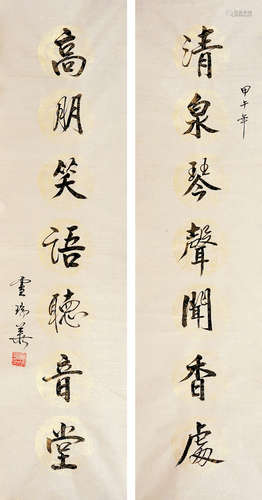 甲午年
清泉琴聲聞香處
高朋笑語聽音堂